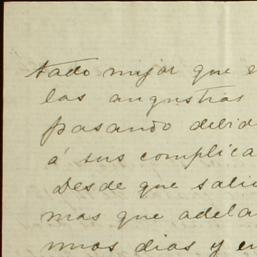 tado mejor que e
las angustias
pasando debid
á sus complica
Desde que salie
mas que adela
mios dias y en